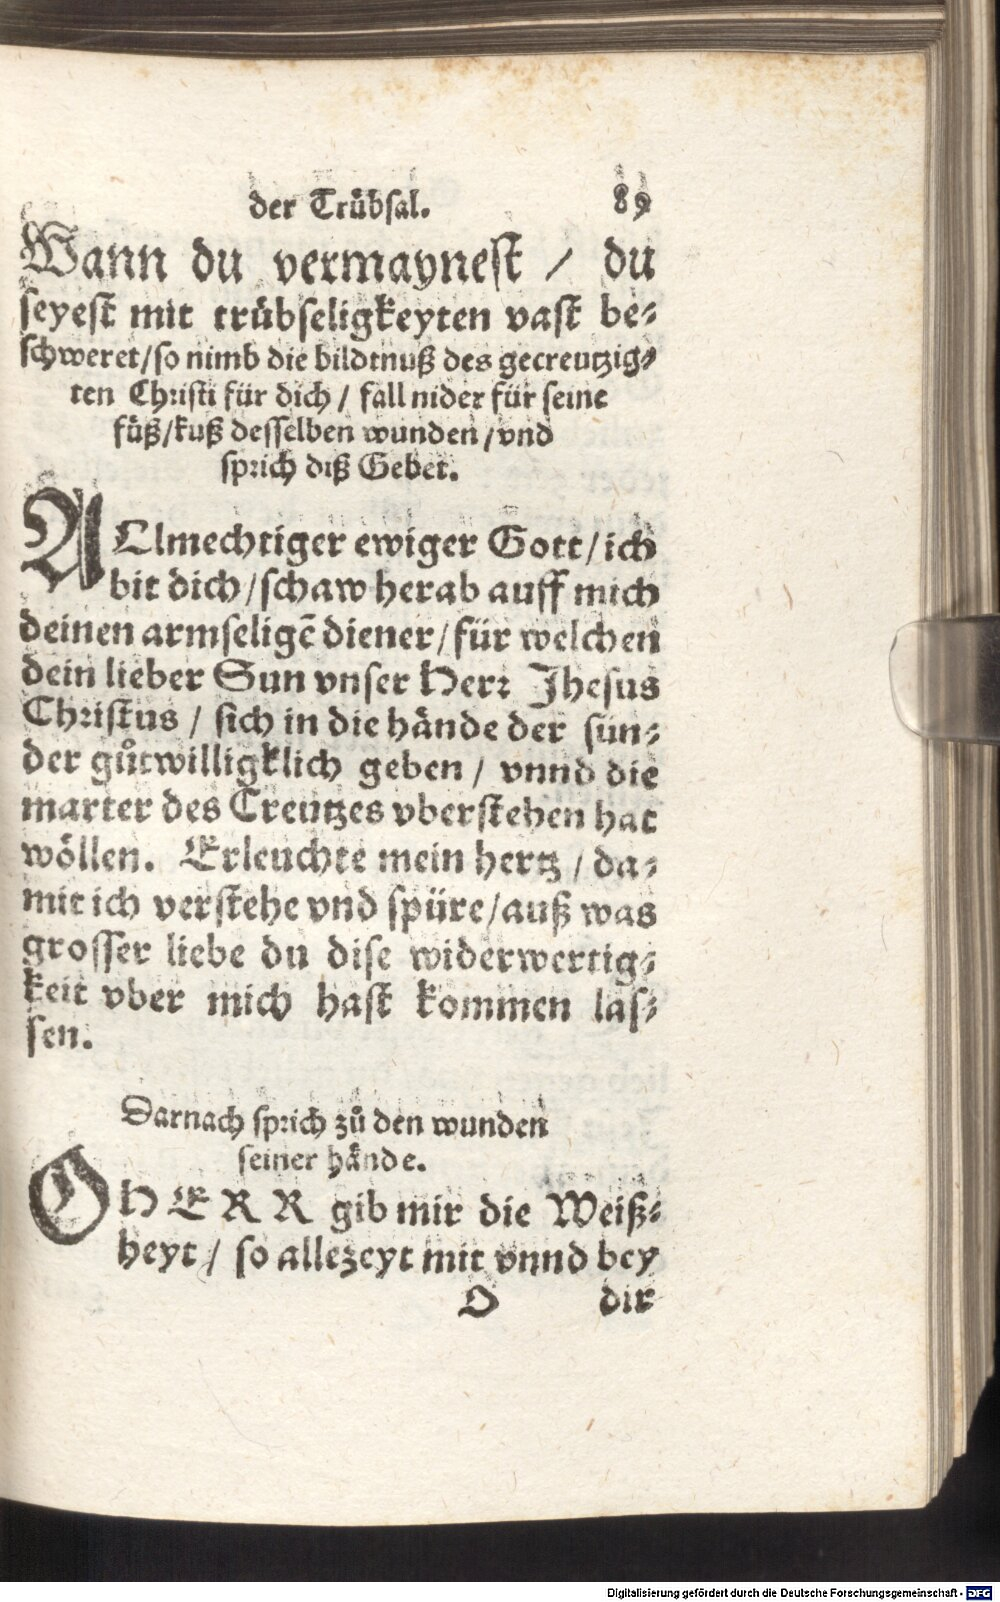 der Trübsal. 89
Wann du vermaynest / du
seyest mit trübseligkeyten vast be⸗
schweret/so nimb die bildtnuß des gecreutzig⸗
ten Christi für dich / fall nider für seine
füß/kuß desselben wunden/vnd
sprich diß Gebet.
ALlmechtiger ewiger Gott/ich
bit dich/schaw herab auff mich
deinen armseligē diener/für welchen
dein lieber Sun vnser Herr Jhesus
Christus / sich in die hände der sün⸗
der gůtwilligklich geben / vnnd die
marter des Creutzes vberstehen hat
wöllen. Erleuchte mein hertz / da⸗
mit ich verstehe vnd spüre/auß was
grosser liebe du dise widerwertig⸗
keit vber mich hast kommen las⸗
sen.
Darnach sprich zů den wunden
seiner hände.
O HERR gib mir die Weiß⸗
heyt / so allezeyt mit vnnd bey
O dir
Digitalisierung gefördert durch die Deutsche Forschungsgemeinschaft - DFG